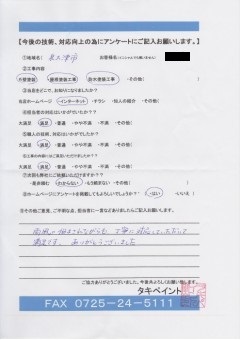 【今後の技術、対応向上の為にアンケートにご記入お願いします。】
①地域名: 泉大津市 お客様名
②工事内容
外壁塗装 屋根塗装工事 防水塗装工事 ・その他( )
③当店をどこで、お知りになりましたか?
当店のホームページ ・インターネット ・チラシ ・知人の紹介 ・その他( )
④担当者の対応はいかがでしたか?
大満足 ・満足 ・普通 ・やや不満 ・不満 ・その他( )
⑤職人の技術、対応はいかがでしたか?
大満足 ・満足 ・普通 ・やや不満 ・不満 ・その他( )
大満足 ・満足 ・普通 ・やや不満 ・不満 ・その他( )
⑦次回も弊社にご依頼いただけますか???
・わからない ・もう頼まない ・その他( )
⑧ホームページにアンケートを掲載してもよろしいでしょうか? ・はい ・いいえ
⑨その他ご意見、ご不明な点、担当者に一言などありましたらご記入お願いします。
丁寧に対応していただいて
満足です。 ありがとうございました
ご協力ありがとうございました。今後共よろしくお願い致します。
タキペイント
FAX 0725-24-5111